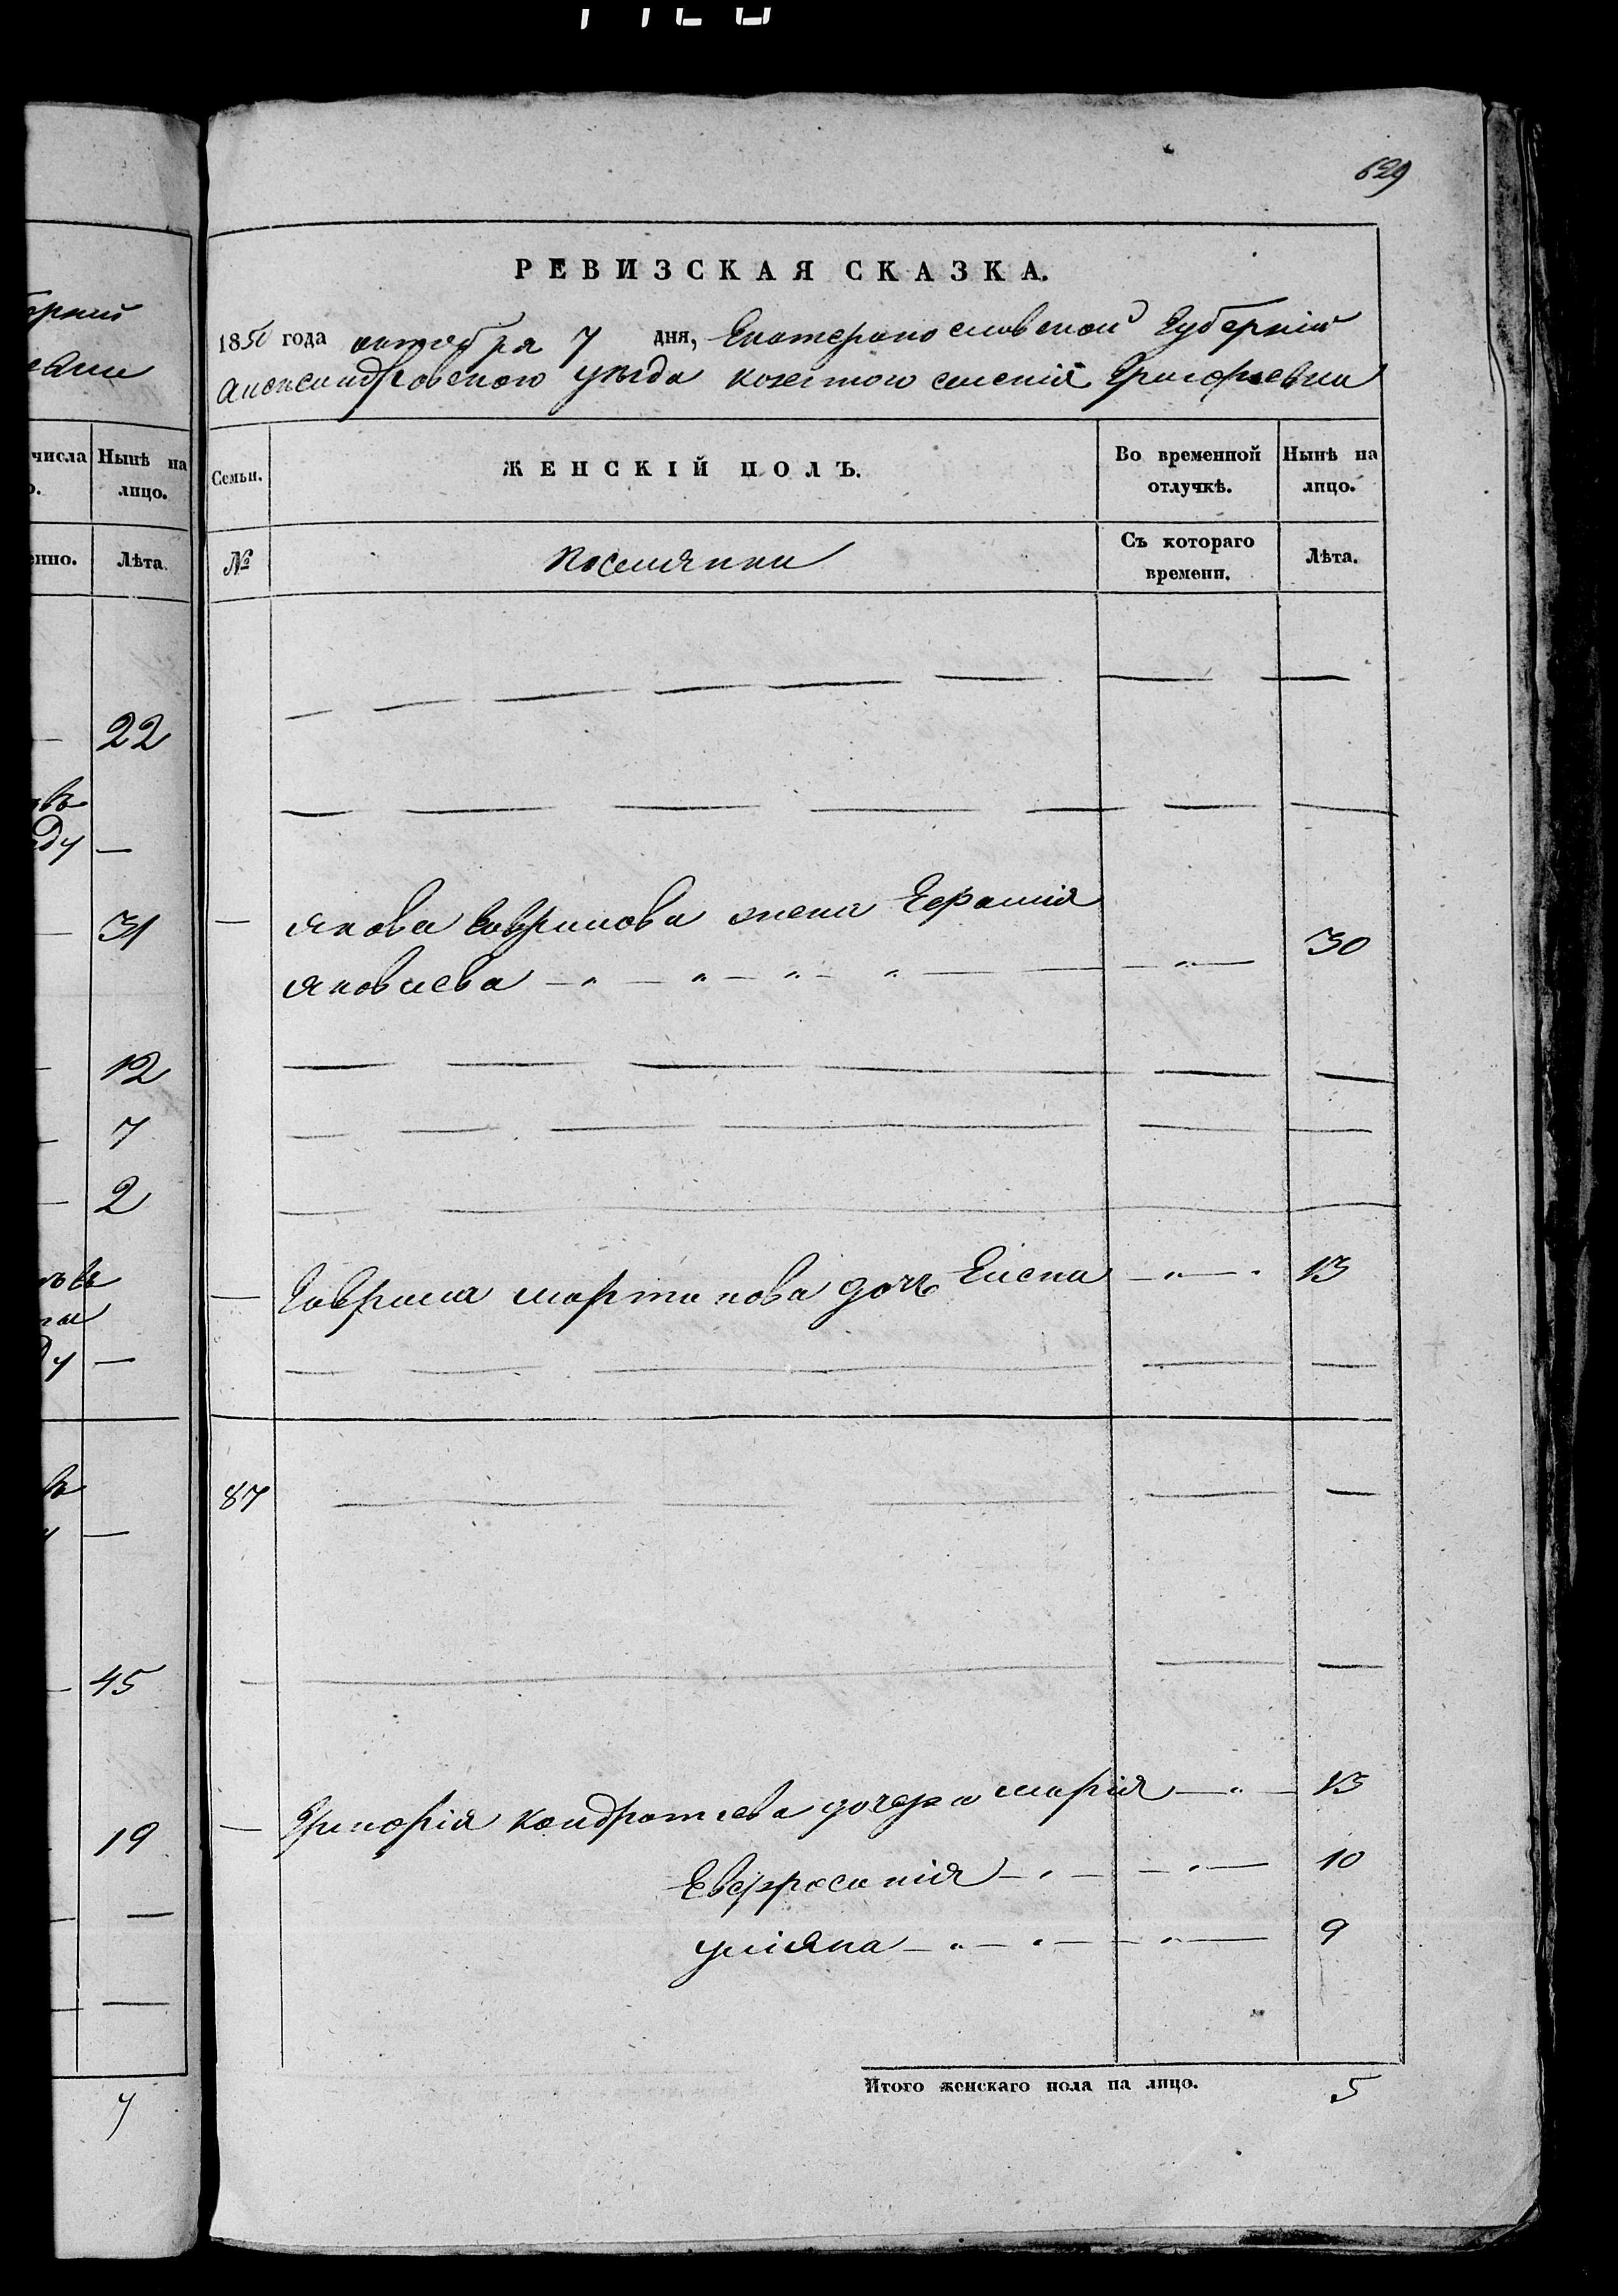 629
РЕВИЗСКАЯ СКАЗКА.
1850 года октября 7 дня, Екатеринославской Губерніи
Александровского уѣзда казенного селенія Григорьевки
числа
Нынѣ на лицо.
Лѣта.
22
ду —
31
12
7
2
—
—
45
19
—
—
7
Семьи.
ЖЕНСКІЙ ПОЛЪ.
Во временной отлучкѣ.
Нынѣ на лицо.
№
Поселянки
Съ котораго времени.
Лѣта.
— Якова Гаврилова жена
Яковлева — „ — „ — „ — „ — — „ — 30
— Гаврила Мартинова дочь Елена — „ — „ 13
87
— Григорія Кондратьева дочери Марія — „ — 13
Евфросинія — „ — — „ — 10
Уліяна — „ — „ — — „ — 9
Итого женскаго пола на лицо. 5